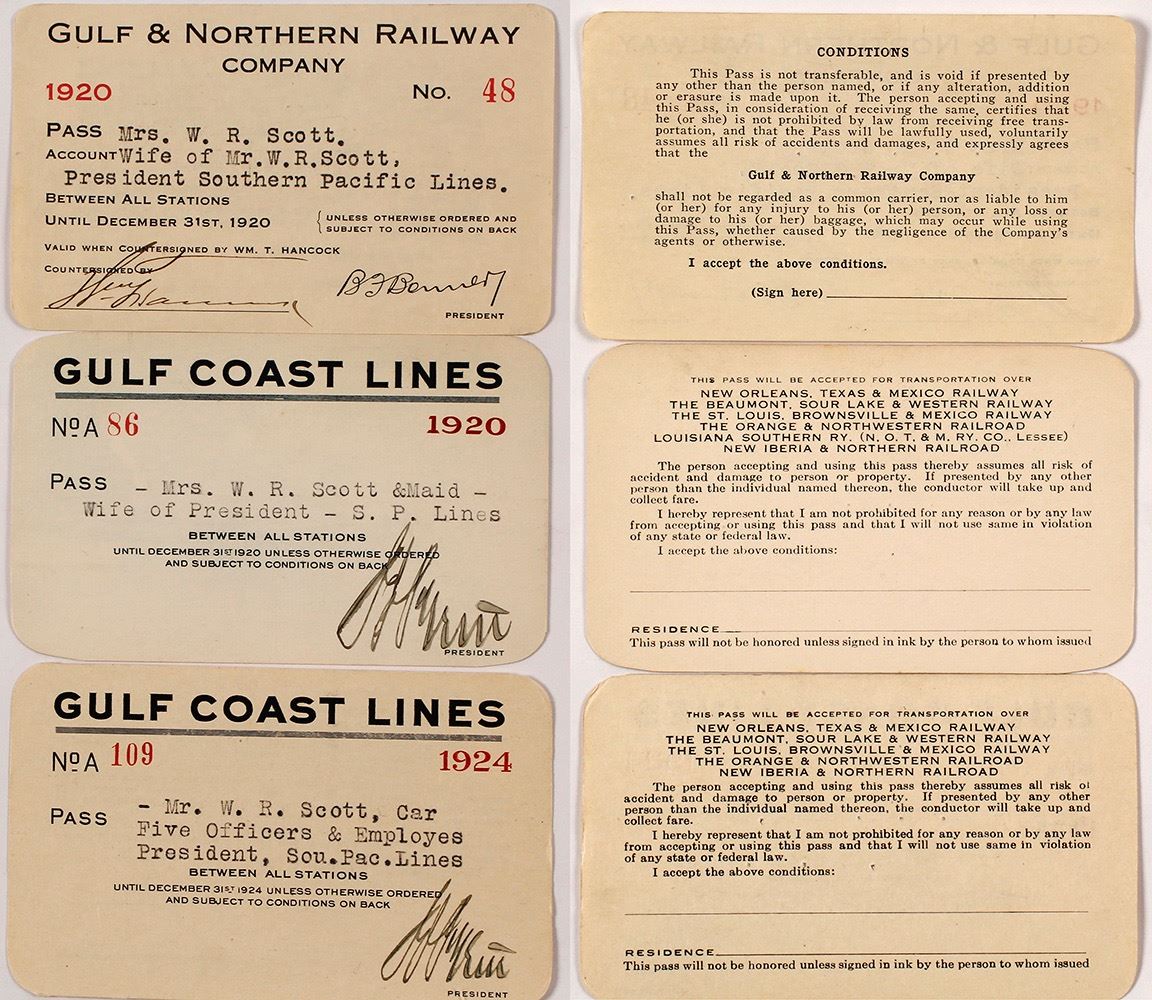 GULF & NORTHERN RAILWAY
COMPANY
1920 No. 48
PASS Mrs. W. R. Scott.
ACCOUNT Wife of Mr.W.R.Scott,
President Southern Pacific Lines.
BETWEEN ALL STATIONS
UNTIL DECEMBER 31ST, 1920 { UNLESS OTHERWISE ORDERED AND
SUBJECT TO CONDITIONS ON BACK
VALID WHEN COUNTERSIGNED BY WM. T. HANCOCK
COUNTERSIGNED BY
PRESIDENT
CONDITIONS
This Pass is not transferable, and is void if presented by
any other than the person named, or if any alteration, addition
or erasure is made upon it. The person accepting and using
this Pass, in consideration of receiving the same, certifies that
he (or she) is not prohibited by law from receiving free trans-
portation, and that the Pass will be lawfully used, voluntarily
assumes all risk of accidents and damages, and expressly agrees
that the
Gulf & Northern Railway Company
shall not be regarded as a common carrier, nor as liable to him
(or her) for any injury to his (or her) person, or any loss or
damage to his (or her) baggage, which may occur while using
this Pass, whether caused by the negligence of the Company's
agents or otherwise.
I accept the above conditions.
(Sign here)
GULF COAST LINES
No A 86 1920
PASS - Mrs. W. R. Scott &Maid -
Wife of President - S. P. Lines
BETWEEN ALL STATIONS
UNTIL DECEMBER 31ST 1920 UNLESS OTHERWISE ORDERED
AND SUBJECT TO CONDITIONS ON BACK
PRESIDENT
THIS PASS WILL BE ACCEPTED FOR TRANSPORTATION OVER
NEW ORLEANS, TEXAS & MEXICO RAILWAY
THE BEAUMONT, SOUR LAKE & WESTERN RAILWAY
THE ST. LOUIS, BROWNSVILLE & MEXICO RAILWAY
THE ORANGE & NORTHWESTERN RAILROAD
LOUISIANA SOUTHERN RY. (N. O. T. & M. RY. CO., LESSEE)
NEW IBERIA & NORTHERN RAILROAD
The person accepting and using this pass thereby assumes all risk of
accident and damage to person or property. If presented by any other
person than the individual named thereon, the conductor will take up and
collect fare.
I hereby represent that I am not prohibited for any reason or by any law
from accepting or using this pass and that I will not use same in violation
of any state or federal law.
I accept the above conditions:
RESIDENCE
This pass will not be honored unless signed in ink by the person to whom issued
GULF COAST LINES
No A 109 1924
PASS - Mr. W. R. Scott, Car
Five Officers & Employes
President, Sou.Pac.Lines
BETWEEN ALL STATIONS
UNTIL DECEMBER 31ST 1924 UNLESS OTHERWISE ORDERED
AND SUBJECT TO CONDITIONS ON BACK
PRESIDENT
THIS PASS WILL BE ACCEPTED FOR TRANSPORTATION OVER
NEW ORLEANS, TEXAS & MEXICO RAILWAY
THE BEAUMONT, SOUR LAKE & WESTERN RAILWAY
THE ST. LOUIS, BROWNSVILLE & MEXICO RAILWAY
THE ORANGE & NORTHWESTERN RAILROAD
NEW IBERIA & NORTHERN RAILROAD
The person accepting and using this pass thereby assumes all risk of
accident and damage to person or property. If presented by any other
person than the individual named thereon, the conductor will take up and
collect fare.
I hereby represent that I am not prohibited for any reason or by any law
from accepting or using this pass and that I will not use same in violation
of any state or federal law.
I accept the above conditions:
RESIDENCE
This pass will not be honored unless signed in ink by the person to whom issued